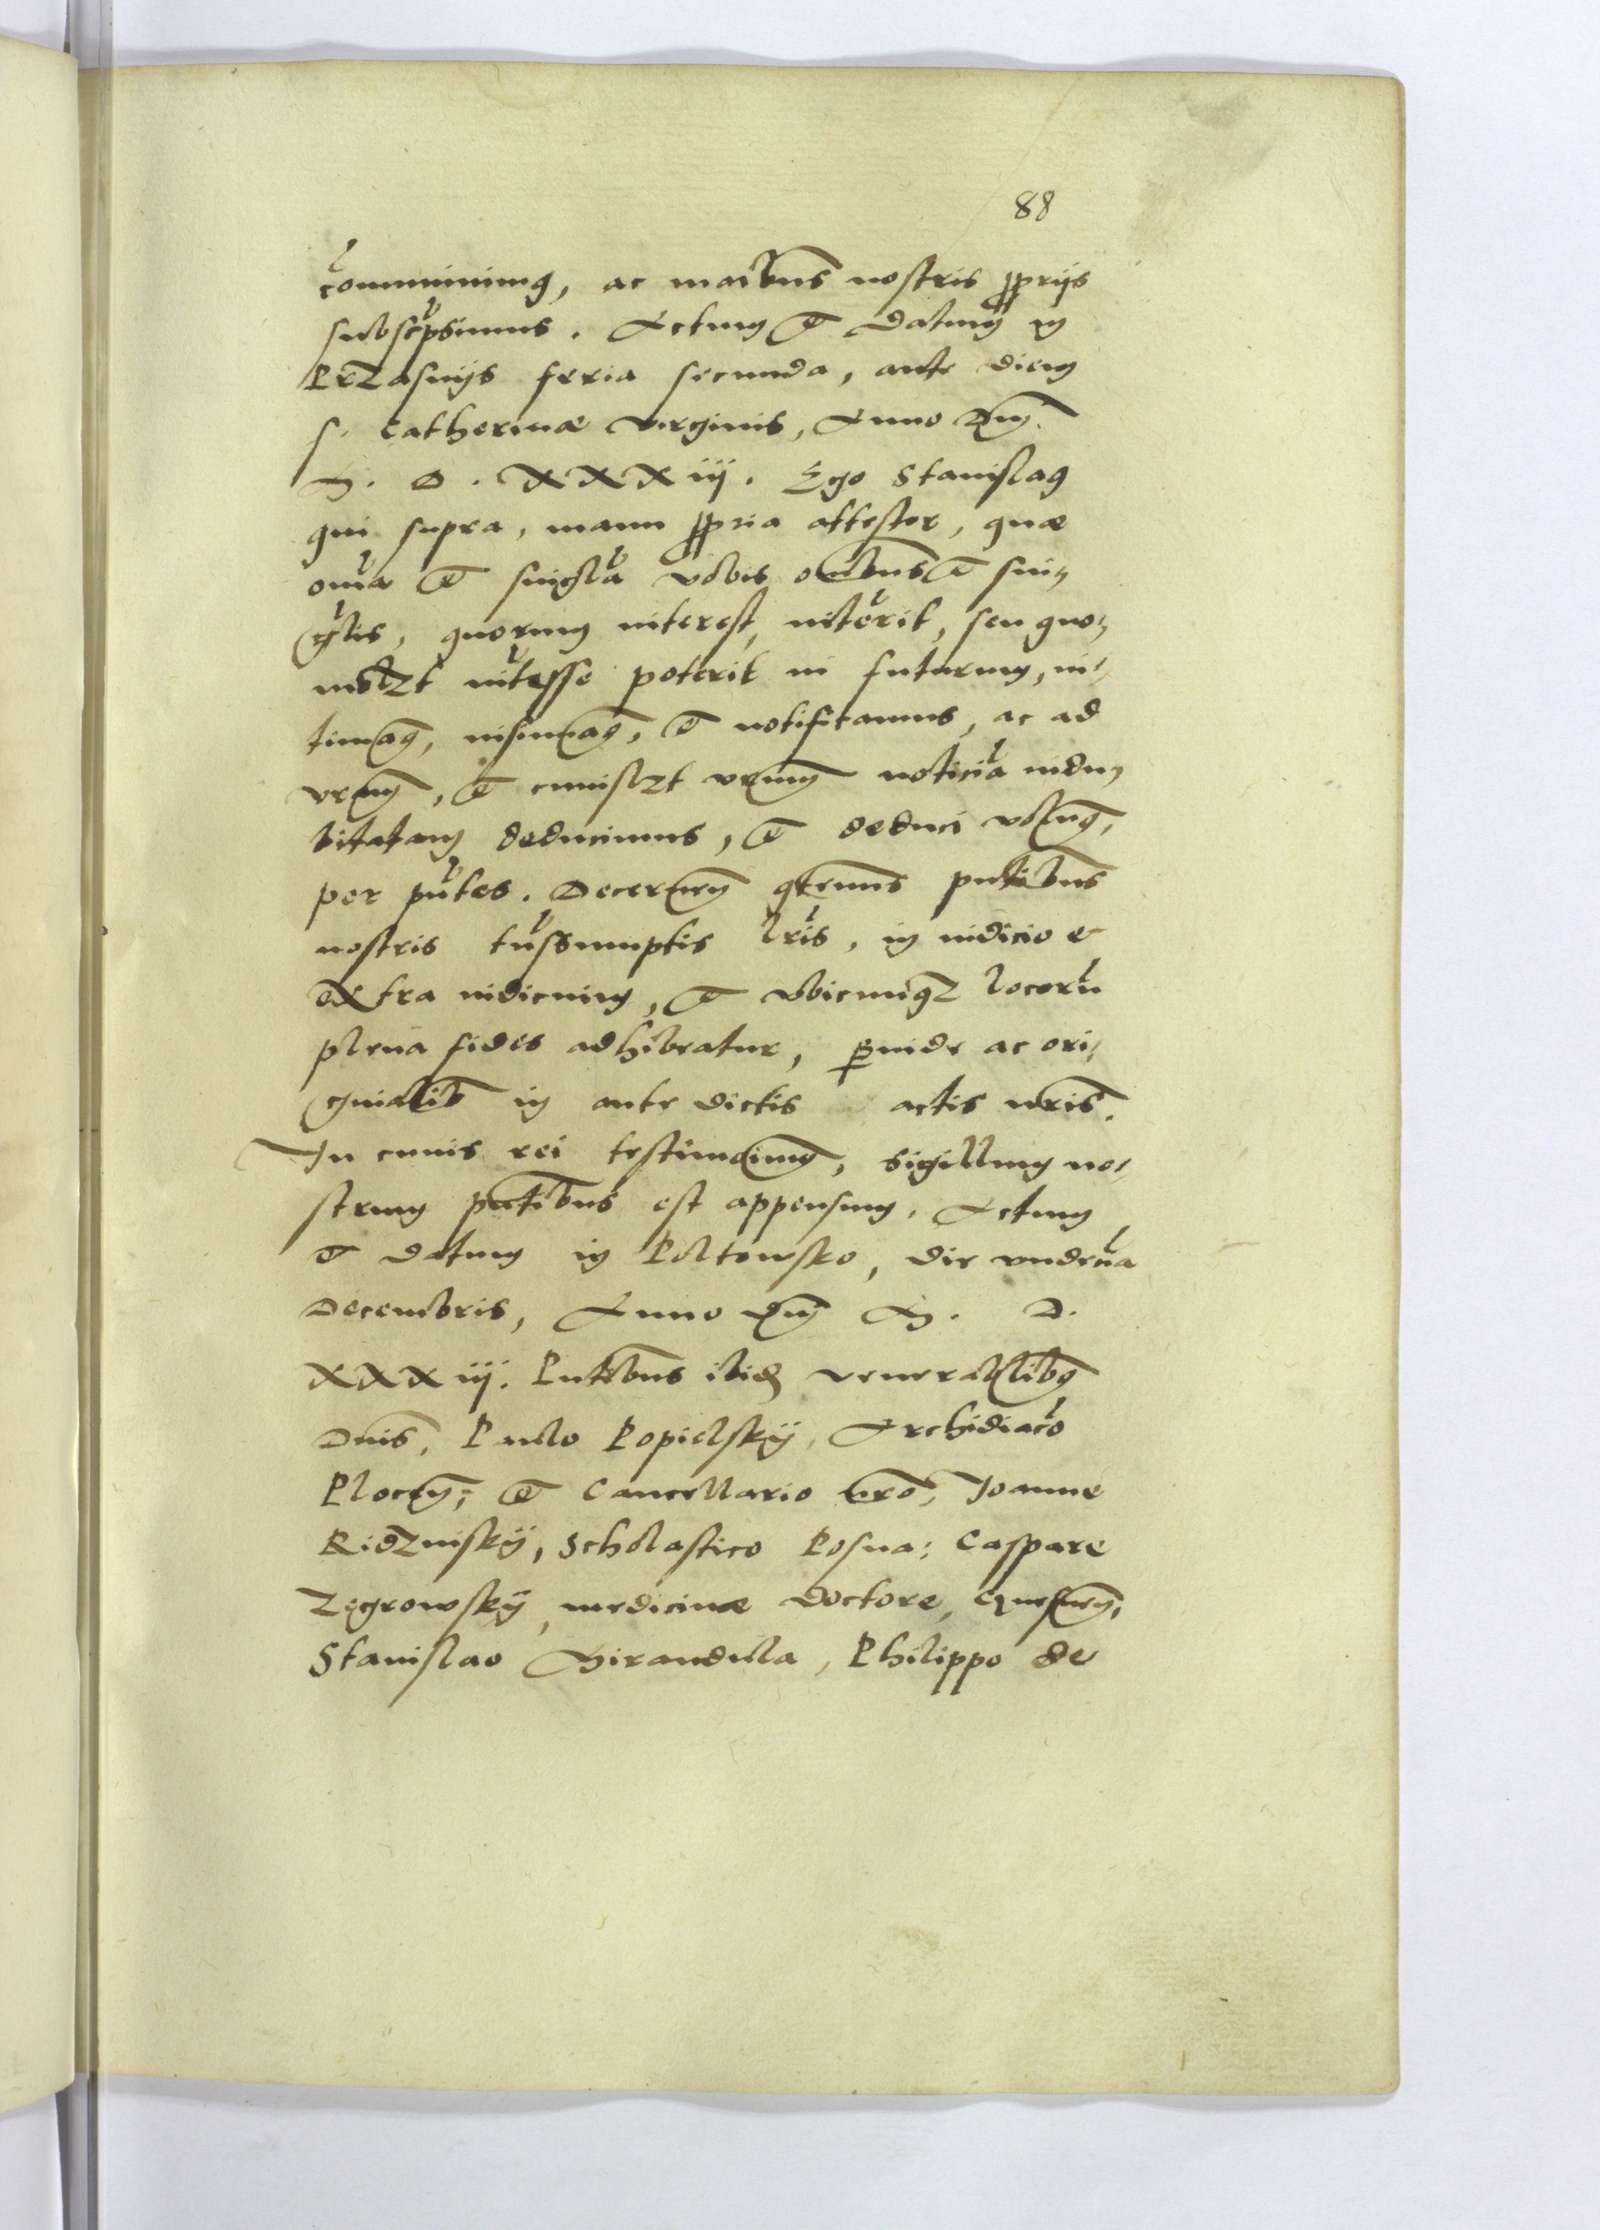 88
com̃unimus, ac manibus nostris proprijs
subscripsimus. Actum et Datum in
Przasnijs feria secunda, ante diem
S. Catherinæ virginis, Anno Dñi.
M. D. XXXiij. Ego Stanislaus
qui supra, manu propria attestor, quæ
om̃ia et singl̃a vobis om̃ibus et sin-
gl̃is, quorum interest, int̃erit, seu quo-
modolzt int̃esse poterit in futurum, in-
timamus, insinuamus, et notificamus, ac ad
vr̃am, et cuiuslzt vr̃um noticiã indu-
bitatam deducimus, et deduci volumus,
per pñtes. Decernen̄ qtenus pñtibus
nostris trãssumptis lr̃is, in iudicio et
extra iudicium, et vbicunqz locorũ
plena fides adhibeatur, perinde ac ori-
ginalib in ante dictis actis nr̃is.
In cuius rei testimonium, sigillum no-
strum pñtibus est appensum. Actum
et Datum in Poltowsko, die vndeña
Decembris, Anno Dñi M. D.
XXXiij. Pñtibus ibid venerabilibus
Dñis, Paulo Popielskÿ, Archidiacõ
Plocen̄, et Cancellario nr̃o, Joanne
Ridzinskÿ, Scholastico Posna: Caspare
Zegrowskÿ, medicinæ doctore,
Stanislao Mirandula, Philippo de